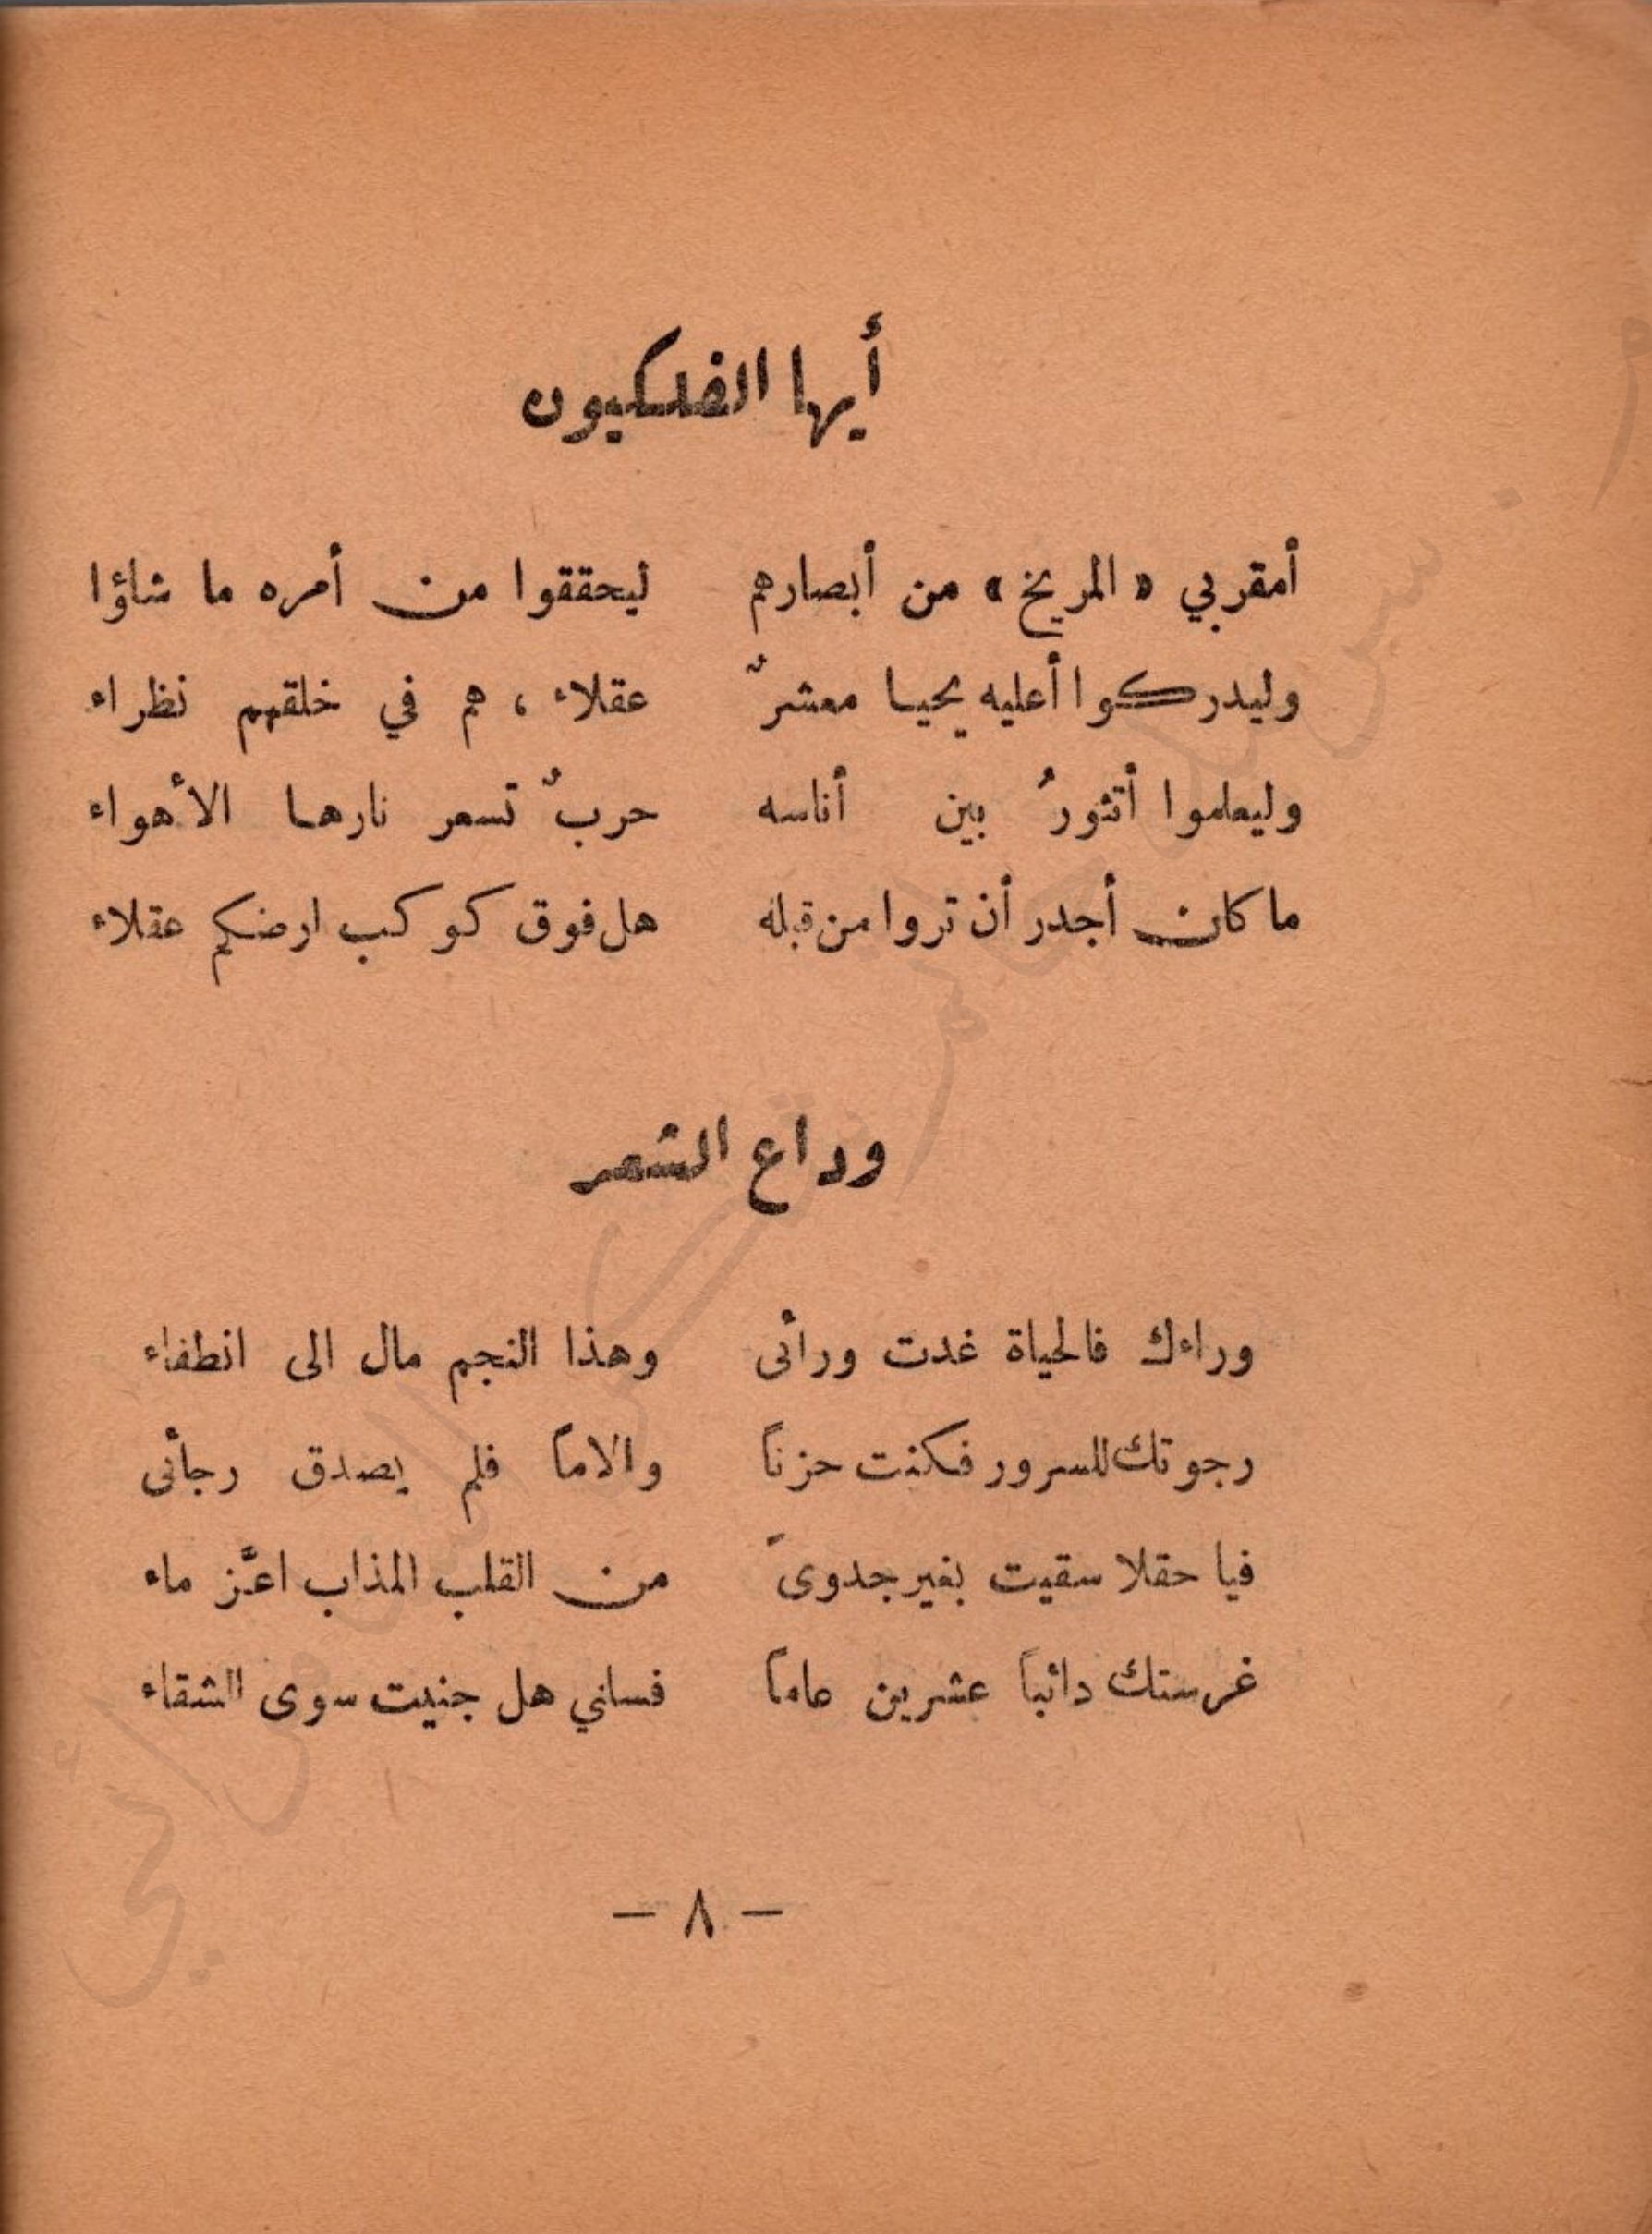 أيها الفلكيون
أمقربي « المريخ » من أبصارهم ليحققوا من أمره ما شاؤا
وليدركوا أعليه يحيا معشرٌ عقلاء ، هم في خلقهم نظراء
وليعلموا أتثورُ بين أناسه حربٌ تسعر نارها الأهواء
ما كان أجدر أن تروا من قبله هل فوق كوكب ارضكم عقلاء
وداع الشعر
وراءك فالحياة غدت ورائى وهذا النجم مال الى انطفاء
رجوتك للسرور فكنت حزناً والاماً فلم يصدق رجائى
فيا حقلا سقيت بغير جدوىً من القلب المذاب اعَّز ماء
غرستك دائباً عشرين عاماً فساني هل جنيت سوى الشقاء
– ٨ –